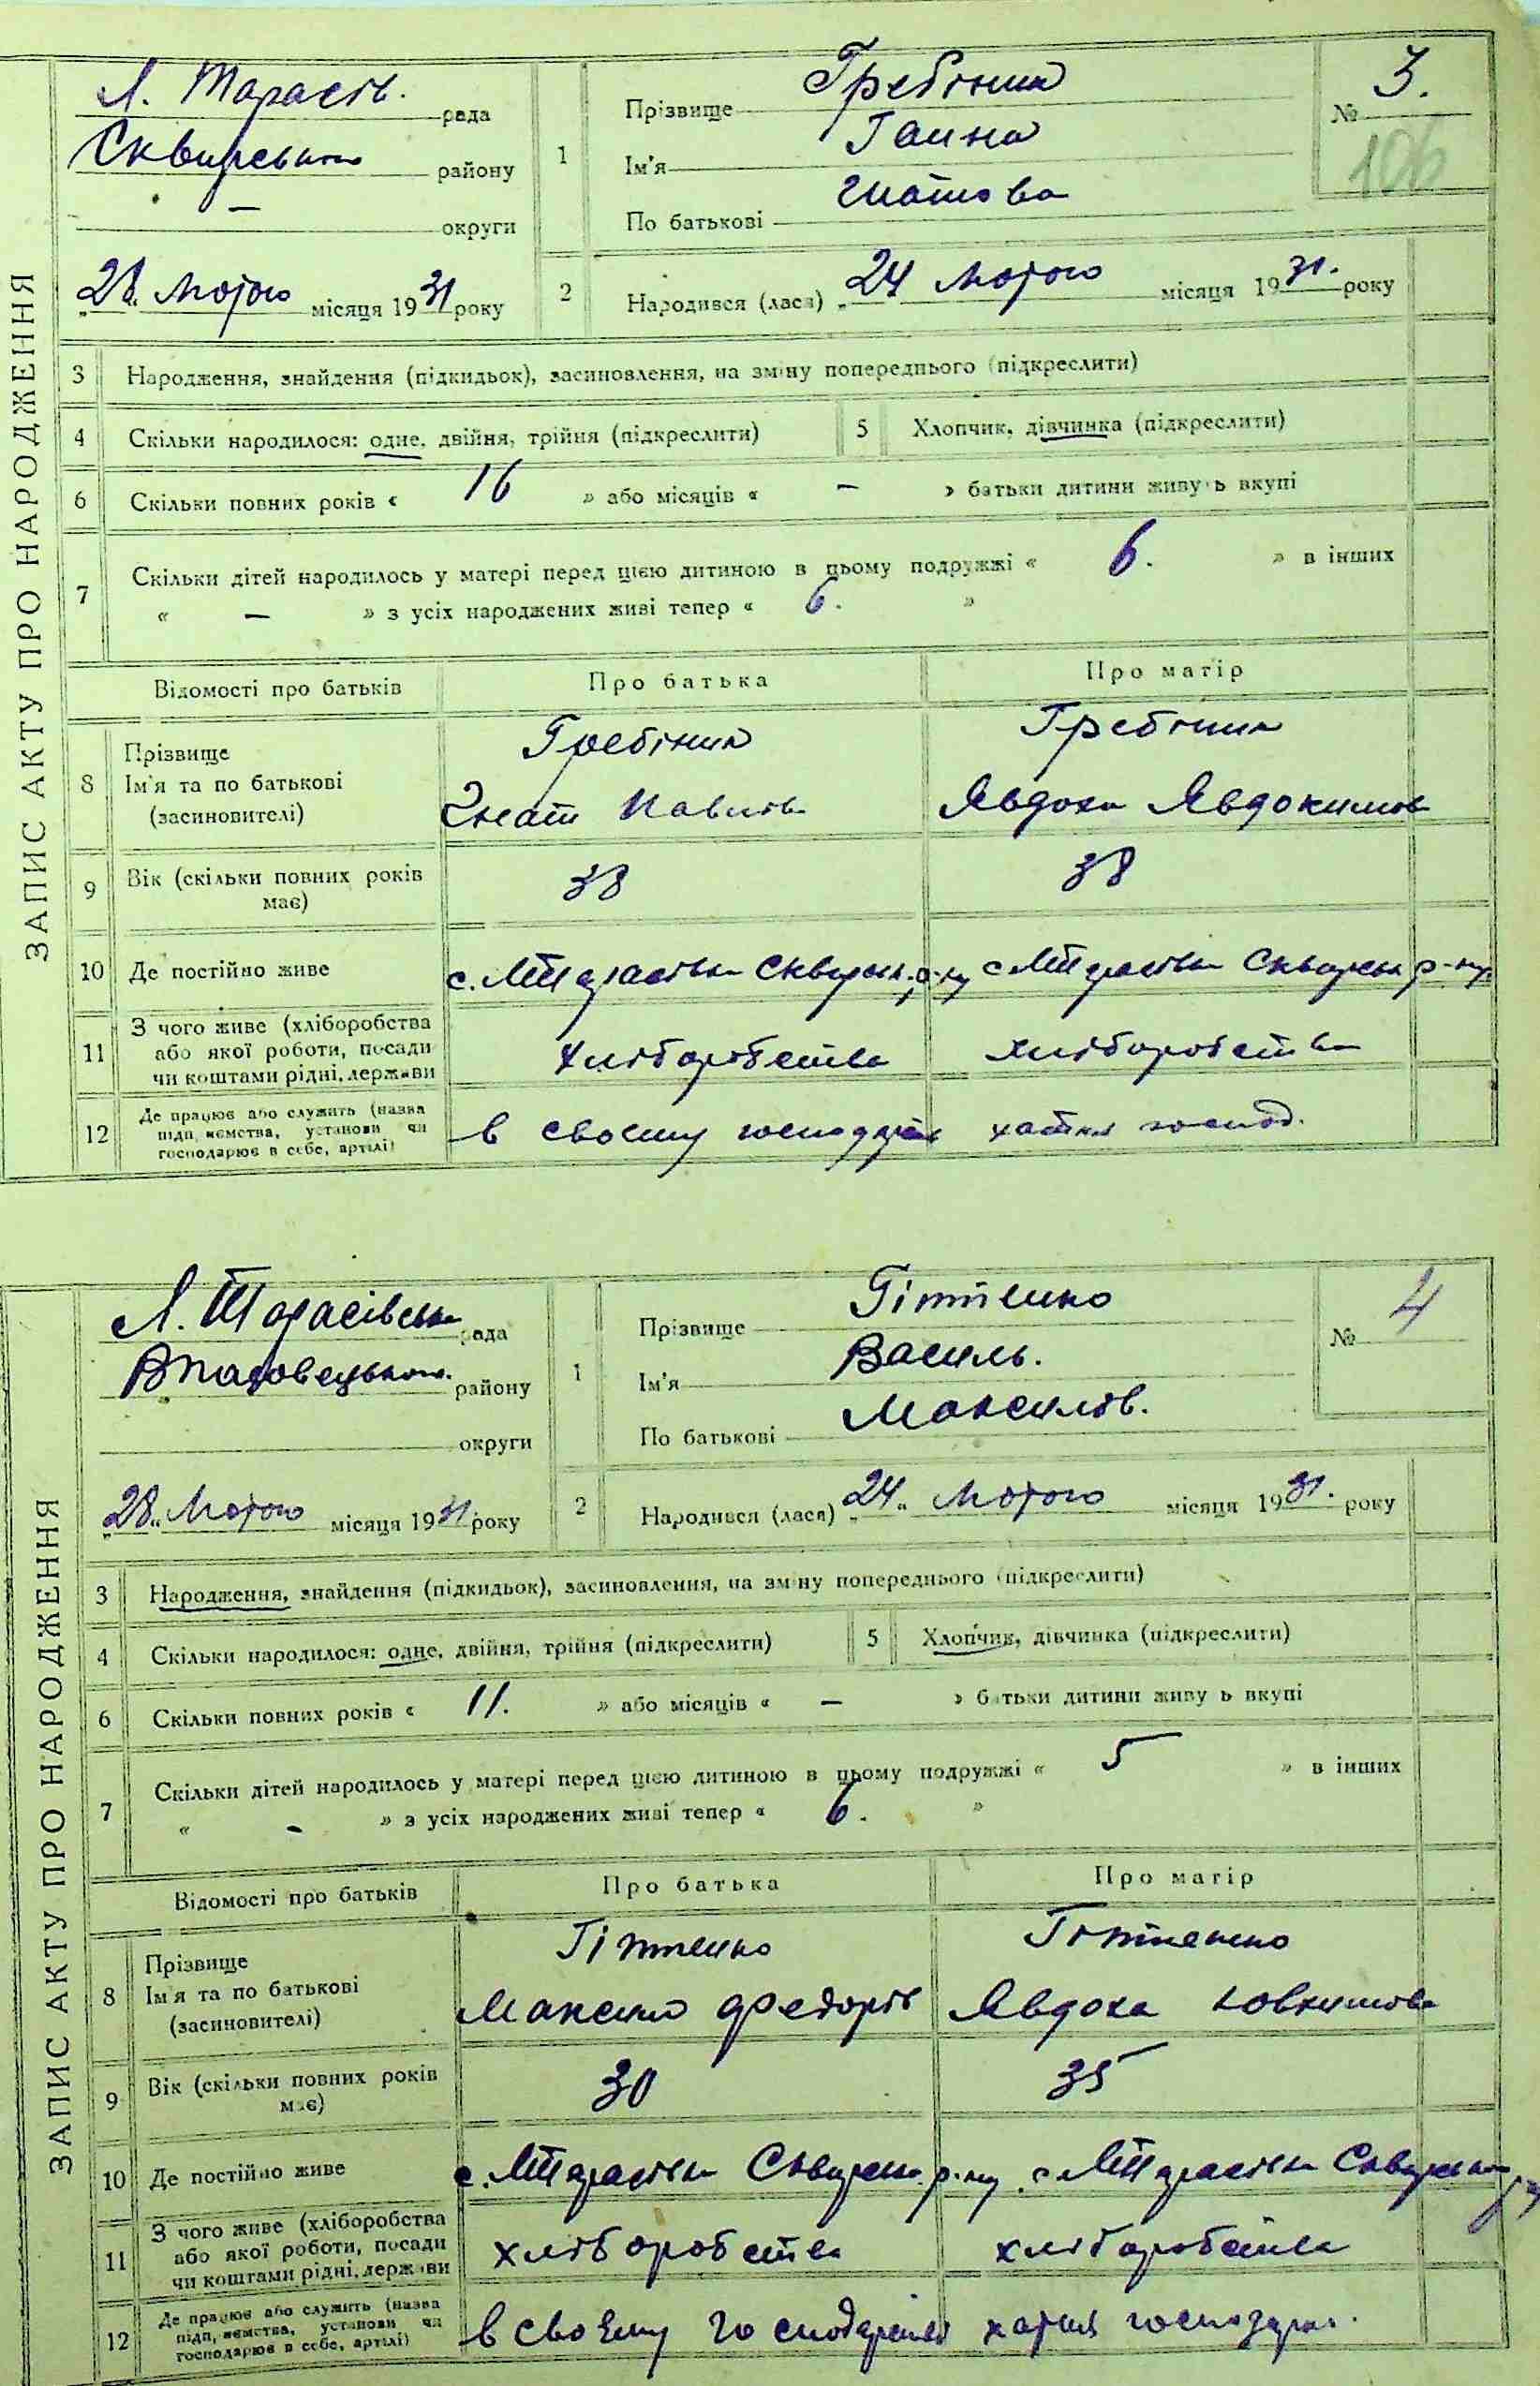 ЗАПИС АКТУ ПРО НАРОДЖЕННЯ
Л. Тарасів. рада
Сквирського району
— округи
28 Лютого місяця 1931 року
1 Прізвище Гребінник
Ім'я Ганна
По батькові Гнатова
№ 3.
106
2 Народився (лася) „24 Лютого місяця 1931. року
3 Народження, знайдення (підкидьок), засиновлення, на зміну попереднього (підкреслити)
4 Скільки народилося: одне, двійня, трійня (підкреслити) 5 Хлопчик, дівчинка (підкреслити)
6 Скільки повних років « 16 » або місяців « – » батьки дитини живуть вкупі
7 Скільки дітей народилось у матері перед цією дитиною в цьому подружжі « 6. » в інших
« — » з усіх народжених живі тепер « 6. »
Відомості про батьків Про батька Про матір
8 Прізвище Гребінник Гребінник
Ім'я та по батькові Гнат Павлів Явдоха Явдокимов
(засиновителі)
9 Вік (скільки повних років має) 38 38
10 Де постійно живе с. МТарасівка Сквирськ. р-ну с МТарасівка Сквирськ р-ну
11 З чого живе (хліборобства або якої роботи, посади чи коштами рідні, держави хліборобства хліборобства
12 Де працює або служить (назва підприємства, установи чи господарює в себе, артілі) в своєму господарстві хатня господ.
ЗАПИС АКТУ ПРО НАРОДЖЕННЯ
Л. Тарасівська рада
району
округи
„28„ Лютого місяця 1931 року
1 Прізвище Гітченко
Ім'я Василь.
По батькові Максимів.
№ 4
2 Народився (лася) „24„ Лютого місяця 1931. року
3 Народження, знайдення (підкидьок), засиновлення, на зміну попереднього (підкреслити)
4 Скільки народилося: одне, двійня, трійня (підкреслити) 5 Хлопчик, дівчинка (підкреслити)
6 Скільки повних років « 11. » або місяців « – » батьки дитини живуть вкупі
7 Скільки дітей народилось у матері перед цією дитиною в цьому подружжі « 5 » в інших
« – » з усіх народжених живі тепер « 6. »
Відомості про батьків Про батька Про матір
8 Прізвище Гітченко Гітченко
Ім'я та по батькові Максим Федорів Явдоха
(засиновителі)
9 Вік (скільки повних років має) 30 35
10 Де постійно живе с. МТарасівка Сквирськ. р-ну с МТарасівка Сквирськ
11 З чого живе (хліборобства або якої роботи, посади чи коштами рідні, держави хліборобства хліборобства
12 Де працює або служить (назва підприємства, установи чи господарює в себе, артілі) в своєму господарстві хатня господар.